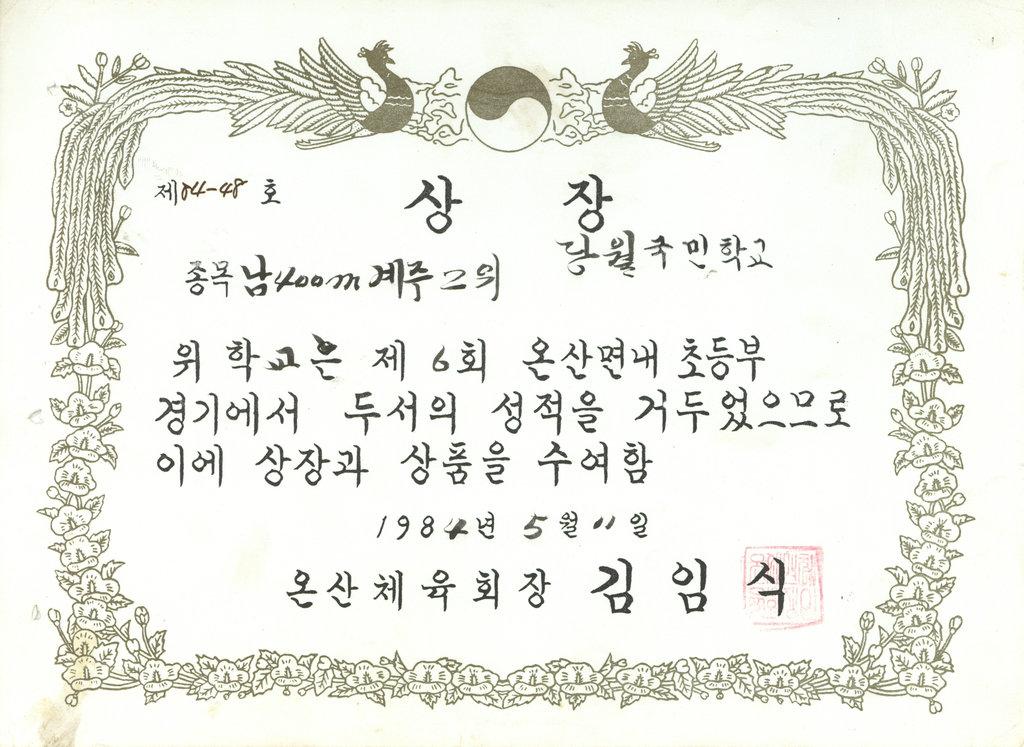 제84-48 호
상 장
당월국민학교
종목 남400m계주 2위
위 학교은 제 6회 온산면내 초등부
경기에서 두서의 성적을 거두었으므로
이에 상장과 상품을 수여함
1984년 5월 11일
온산체육회장 김 임 식